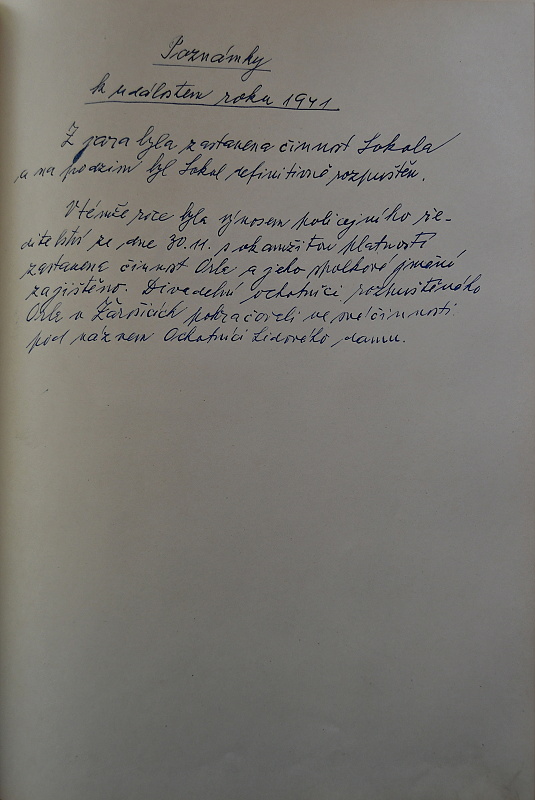 Poznámky
k událostem roku 1941
Z jara byla zastavena činnost Sokola
a na podzim byl Sokol definitivně rozpuštěn.
V témže roce byla výnosem policejního ře-
ditelství ze dne 30.11. s okamžitou platností
zastavena činnost Orla a jeho spolkové jmění
zajištěno. Divadelní ochotníci rozpuštěného
Orla v Žarošicích pokračovali ve své činnosti
pod názvem Ochotníci Lidového domu.